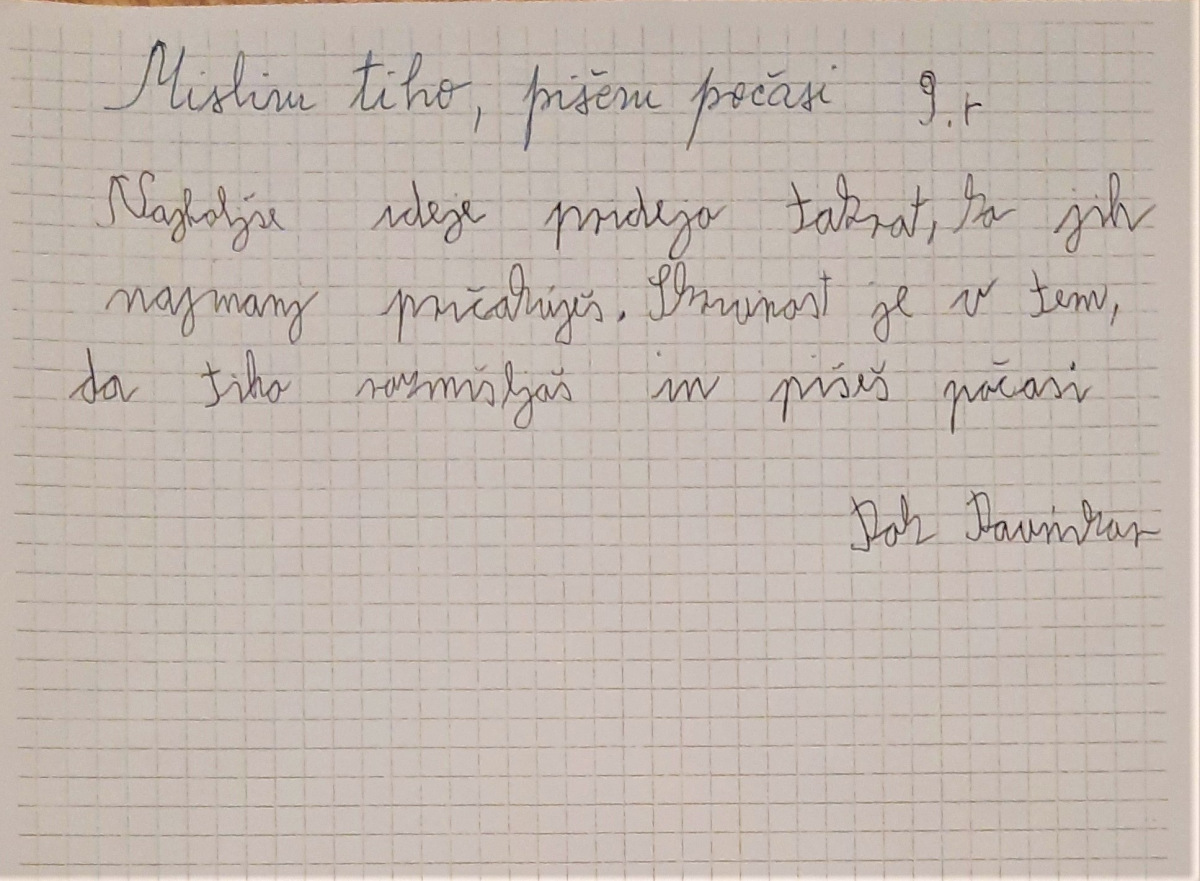 Mislim tiho, pišem počasi 9.r
Najboljše ideje pridejo takrat, ko jih
najmanj pričakuješ. Skrivnost je v tem,
da tiho razmišljaš in pišeš počasi
Rok